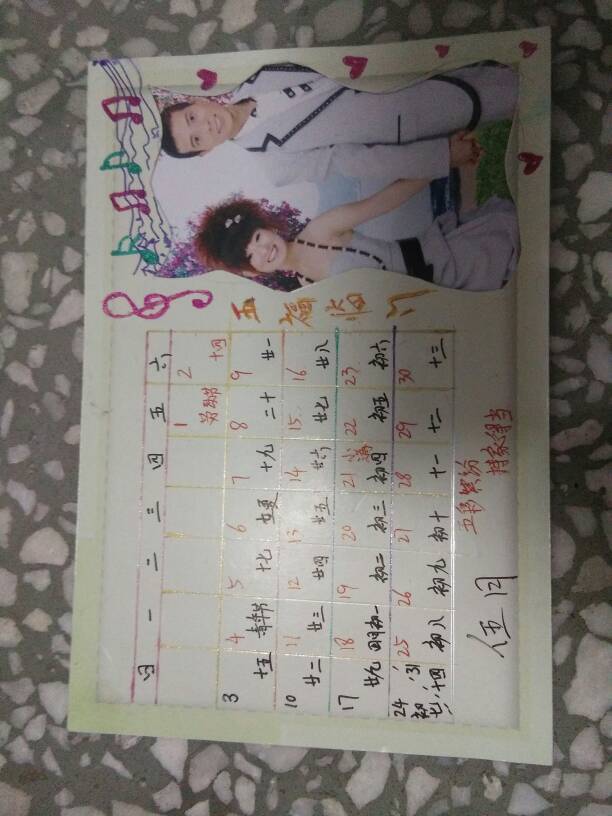 五福临门
日 一 二 三 四 五 六
1 2
劳动节 十四
3 4 5 6 7 8 9
十五 青年节 十七 立夏 十九 二十 廿一
10 11 12 13 14 15 16
廿二 廿三 廿四 廿五 廿六 廿七 廿八
17 18 19 20 21 小满 22 23
廿九 初一 初二 初三 初四 初五 初六
24/31 25 26 27 28 29 30
初七/十四 初八 初九 初十 十一 十二 十三
伍月
五彩缤纷
持家得当